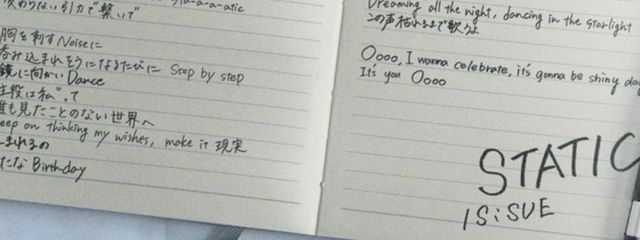 わらない引力で"繋いで"
胸を刺すNoiseに
呑み込まれそうになるたびに Step by step
鏡に向かいDance
主役は"私"って
誰も見たことのない世界へ
keep on thinking my wishes, make it 現実
まれるの
たな Birthday
Dreaming all the night, dancing in the starlight
この声枯れるまで歌うよ
Oooo, I wanna celebrate, it's gonna be shiny day
It's you Oooo
STATIC
/ SiSUE